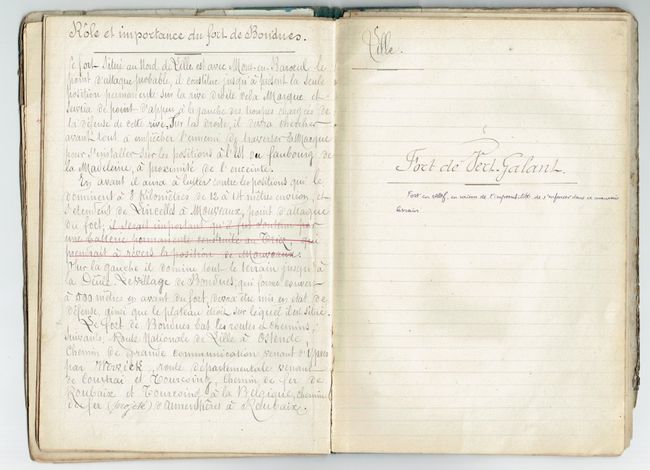 Rôle et importance du fort de Bondues.
Ce fort situé au Nord de Lille est avec Mons-en-Baroeul le
point d'attaque probable, il constitue jusqu'à présent la seule
position permanente sur la rive droite de la Marque et
servira de point d'appui, à la gauche des troupes chargées de
la défense de cette rive. Sur la droite, il devra chercher
avant tout à empêcher l'ennemi de traverser la Marque
pour s'installer sur les positions à l'Est du faubourg de
la Madeleine, à proximité de l'enceinte.
En avant il aura à lutter contre les positions qui le
dominent à 3 kilomètres de 12 à 14 mètres environ, et
s'étendent de Linselles à Mouvaux, point d'attaque
du fort, il serait important qu'il fut soutenu par
une batterie permanente construite au Triez, qui
prendrait à revers la position de Mouvaux.
Sur la gauche il domine tout le terrain jusqu'à
la Deûle. Le village de Bondues, qui forme couvert
à 500 mètres en avant du fort, devra être mis en état de
défense, ainsi que le plateau droit sur lequel il est situé.
Le fort de Bondues bat les routes et chemins,
suivants, Route Nationale de Lille à Ostende,
Chemin de grande communication venant d'Ypres
par Wervicq, route départementale venant
de Courtrai et Tourcoing, chemin de fer de
Roubaix et Tourcoing à la Belgique, chemin
de fer (projeté) d'Armentières à Roubaix.
Lille.
Fort de Vert-Galant.
Fort en relief, en raison de l'impossibilité de s'enfoncer dans ce mauvais
terrain